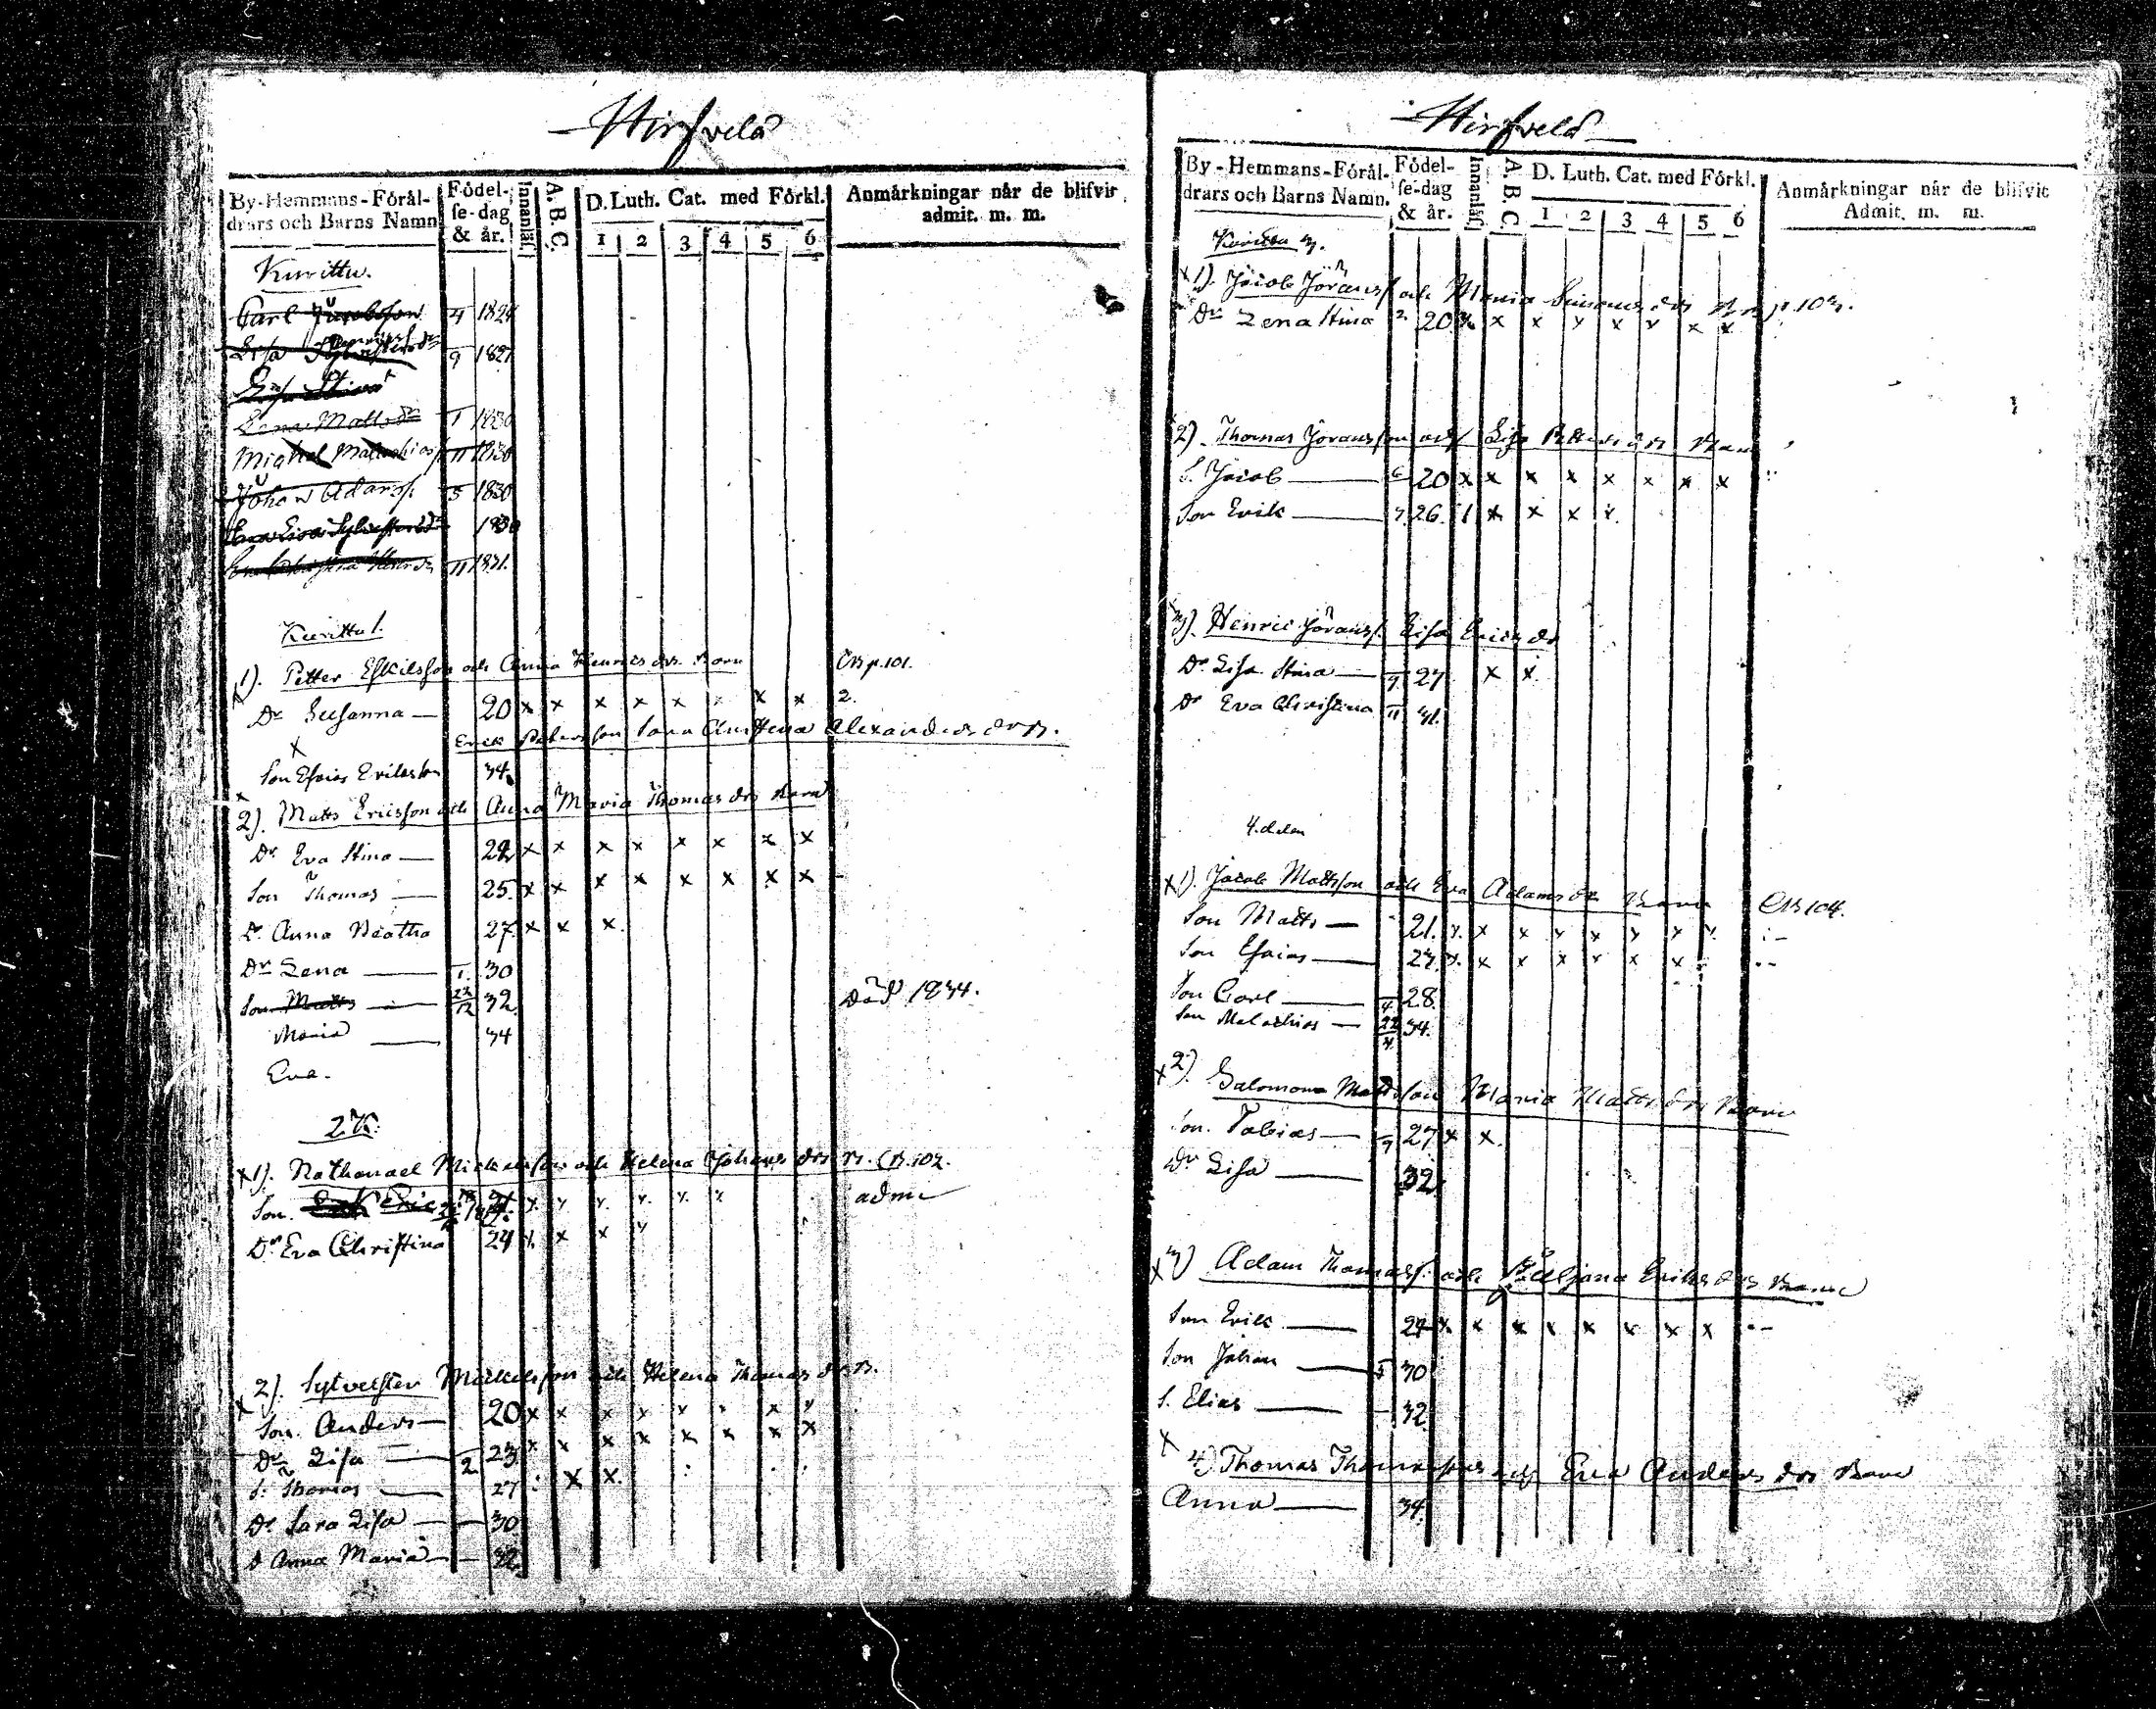 Hirfvelä
By-Hemmans-Förål-
drars och Barns Namn
Födel-
se-dag
& år.
Innanläs.
A. B. C.
D. Luth. Cat. med Förkl.
1 2 3 4 5 6
Anmärkningar när de blifvit
admit. m. m.
Kurittu.
Carl Jacobsson 4 1828
Lisa 9 1827
Lisa Stina
Lena Mattsdr 1 1830
Michel Malachias 11 1830
Johan Adamss. 5 1830
Eva Lisa Sylvestersdr 1830
11 1831.
Kurittu 1.
1). Petter Eskilsson och Anna Henricsdrs Barn CB p. 101.
Dr Susanna — 20 x x x x x x x x 2.
Erik Petersson Sara Christina Alexandersdr B.
x
Son Esaias Eriksson 34.
x
2). Matts Ericsson och Anna Maria Thomasdrs Barn
Dr Eva Stina — 22 x x x x x x x x
Son Thomas — 25. x x x x x x x x -
Dr Anna Beatha 27. x x x.
Dr Lena — 1. 30
Son Matts — 23/12 32. Död 1834.
Maria — 34
Eva.
2 K.
x 1). Nathanael Mickelsson och Helena Johansdrs B. CB. 102.
Son. Eric x x x x x x admi
Dr Eva Christina 24 x x x x
x 2). Sylvester Mickelsson och Helena Thomasdrs B.
Son. Anders — 20 x x x x x x x x
Dr Lisa — 2 23. x x x x x x x x
S. Thomas — 27 : x x.
Dr Sara Lisa — 30
D Anna Maria — 32.
Hirfvelä
By-Hemmans-Förål-
drars och Barns Namn.
Födel-
se-dag
& år.
Innanläs.
A. B. C.
D. Luth. Cat. med Förkl.
1 2 3 4 5 6
Anmärkningar när de blifvit
Admit. m. m.
Kurittu 3.
x 1). Jacob Jöranss. och Maria Simonsdrs B. p. 103.
Dr Lena Stina 2 20 x x x x x x x x
2). Thomas Jöransson och Lisa Barn
S. Jacob — 6 20 x x x x x x x x
Son Erik — 26. x x x x.
3). Henric Jöranss. Lisa Ericsdr
Dr Lisa Stina — 9 27 x x
Dr Eva Christina 11 31.
4. delen
x 1). Jacob Mattsson och Eva Adamsdr Barn CB 104.
Son Matts — 21. x. x x x x x x x.
Son Esaias — x. x x x x x x
Son Carl — 4 28
Son Malachias — 22/4 34.
x 2). Salomon Mattsson Maria Mattsdrs Barn
Son. Tobias — 9 27 x x.
Dr Lisa — 32
x 3) Adam Thomass. och Juljana Eriksdrs Barn
Son Erik — 24 x x x x x x x x
Son Johan — 5 30
S. Elias — 32
x
4) Thomas Thomasson och Eva Andersdrs Barn
Anna — 34.